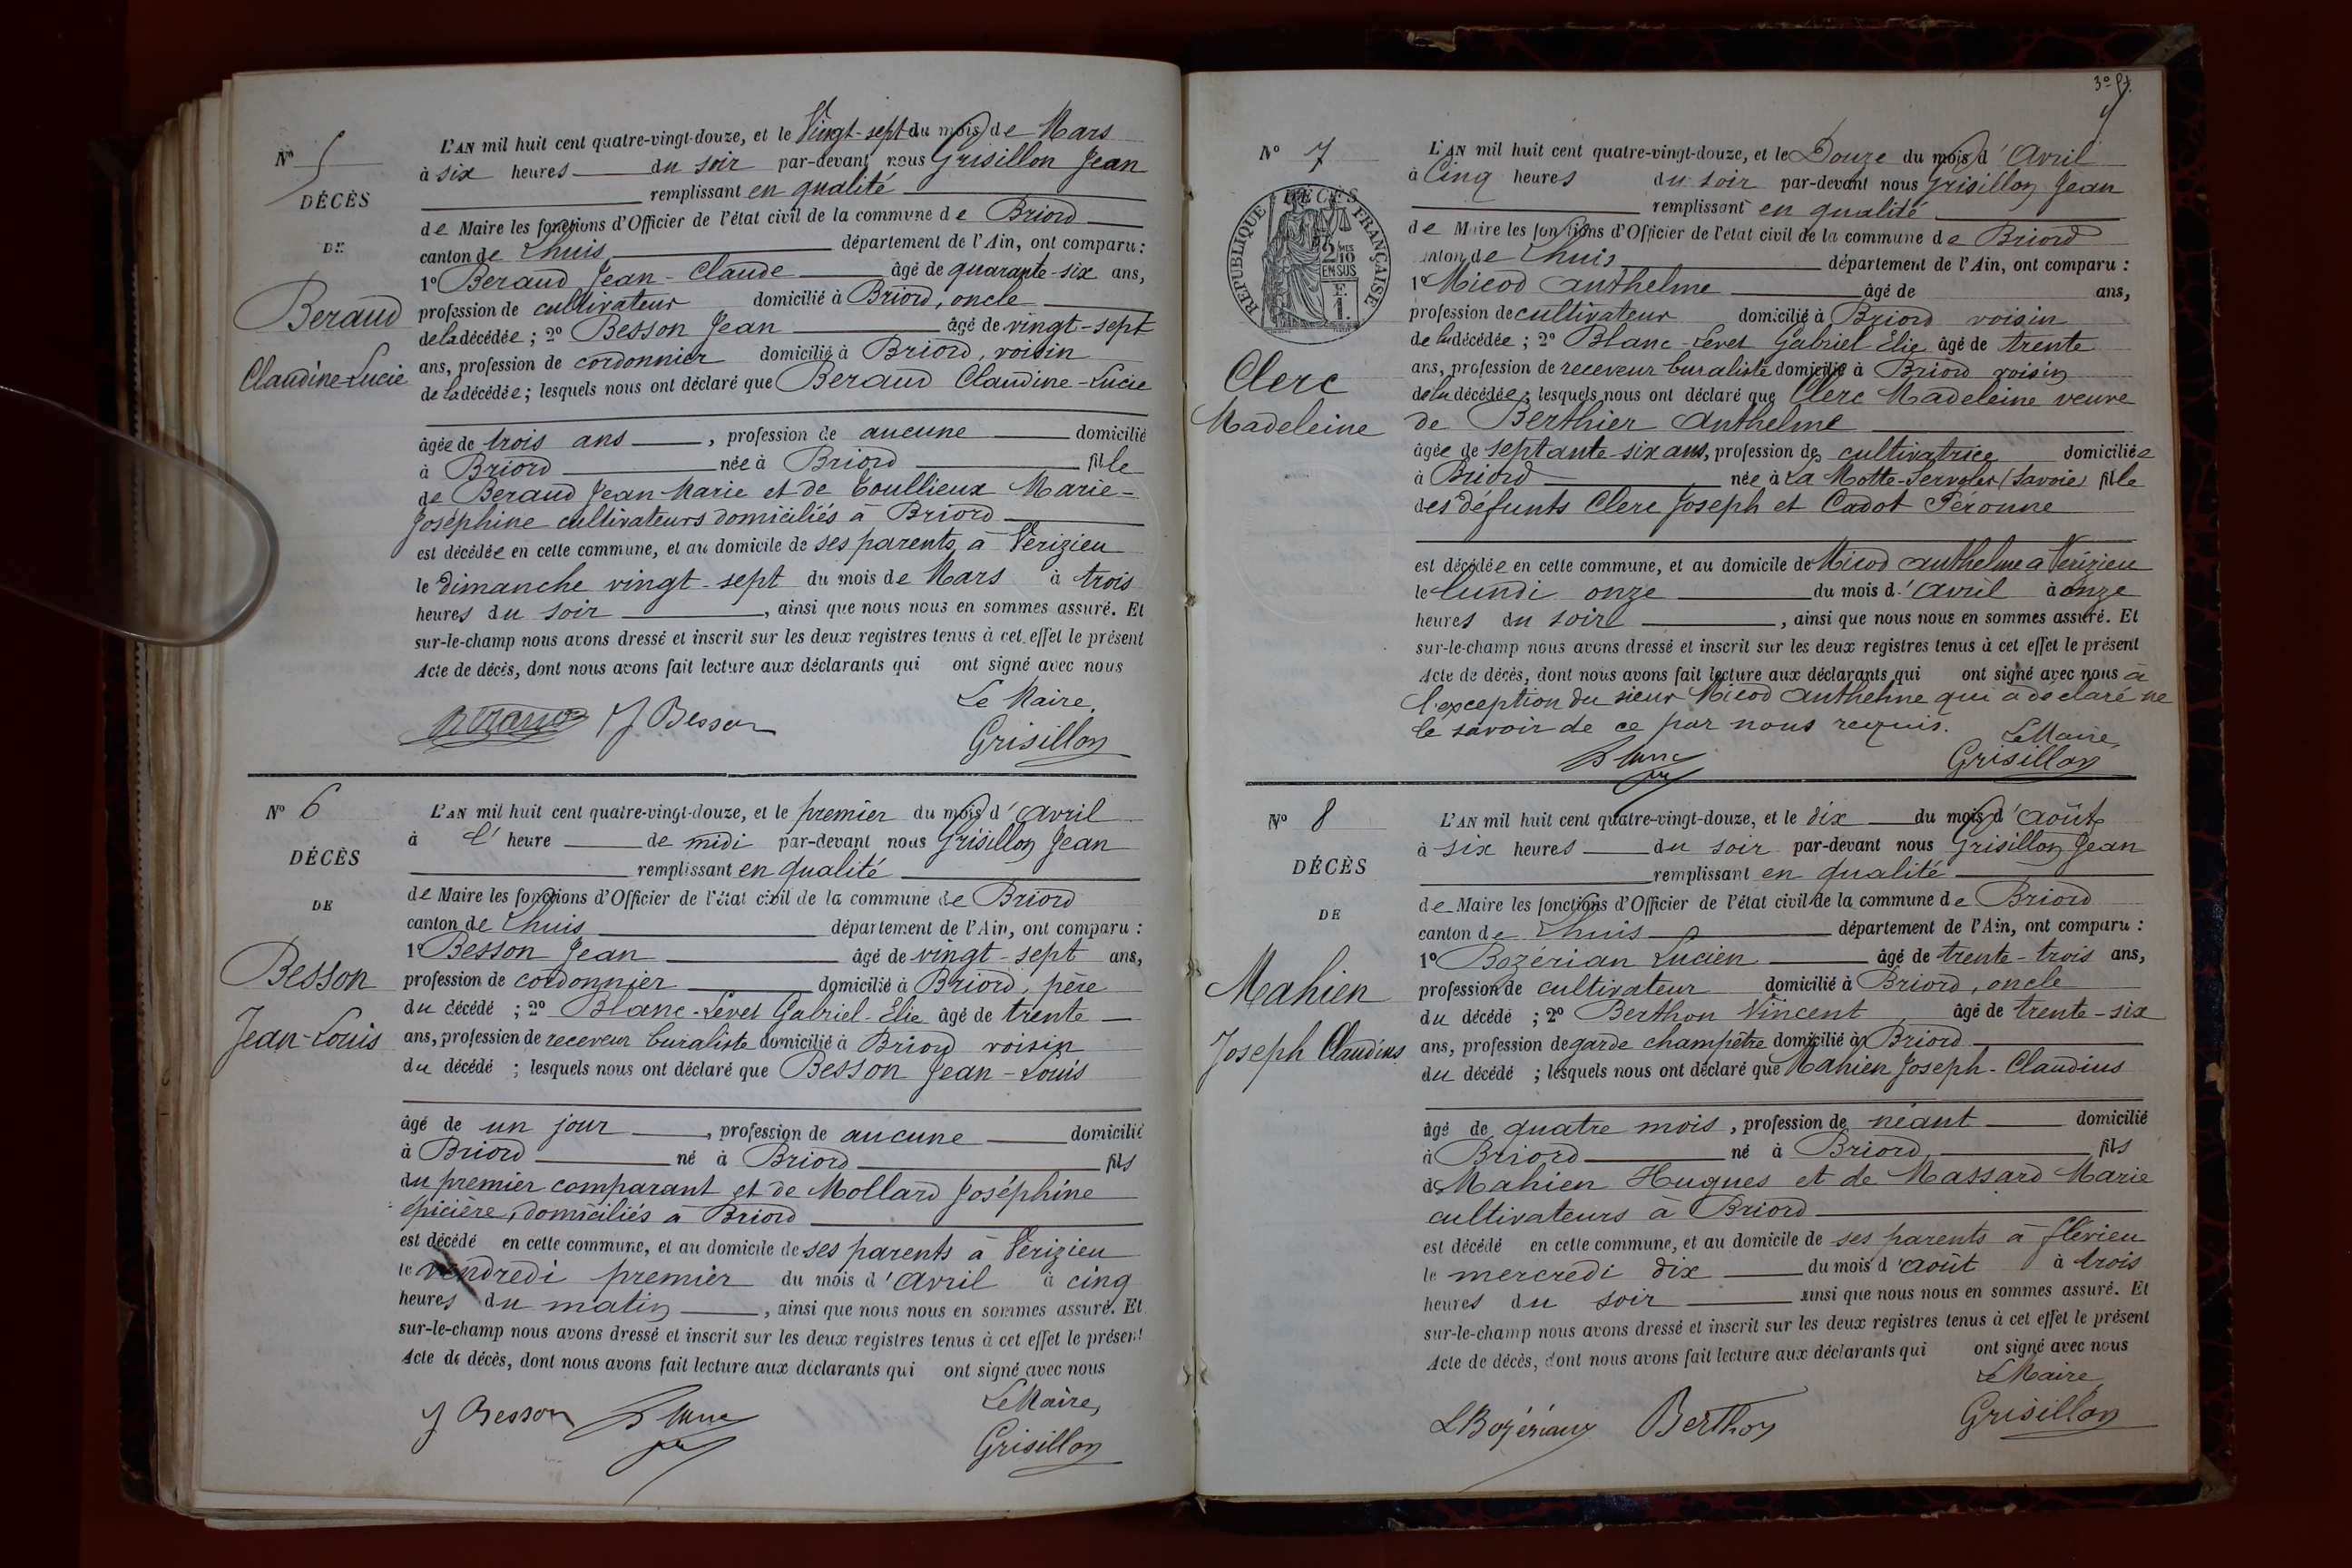 N° 5
DÉCÈS
DE
Beraud
Claudine-Lucie
L'AN mil huit cent quatre-vingt-douze, et le Vingt-sept du mois de Mars
à six heures du soir par-devant nous Grisillon Jean
remplissant en qualité
de Maire les fonctions d'Officier de l'état civil de la commune de Briord
canton de Lhuis département de l'Ain, ont comparu :
1° Beraud Jean-Claude âgé de quarante-six ans,
profession de cultivateur domicilié à Briord, oncle
de la décédée ; 2° Besson Jean âgé de vingt-sept
ans, profession de cordonnier domicilié à Briord, voisin
de la décédée ; lesquels nous ont déclaré que Beraud Claudine-Lucie
âgée de trois ans, profession de aucune domicilié
à Briord née à Briord fille
de Beraud Jean Marie et de Coullieux Marie-
Joséphine cultivateurs domiciliés à Briord
est décédée en cette commune, et au domicile de ses parents à Vérizieu
le dimanche vingt-sept du mois de Mars à trois
heures du soir, ainsi que nous nous en sommes assuré. Et
sur-le-champ nous avons dressé et inscrit sur les deux registres tenus à cet effet le présent
Acte de décès, dont nous avons fait lecture aux déclarants qui ont signé avec nous
Le Maire,
J Besson Grisillon
N° 6
DÉCÈS
DE
Besson
Jean-Louis
L'AN mil huit cent quatre-vingt-douze, et le premier du mois d'Avril
à l'heure de midi par-devant nous Grisillon Jean
remplissant en qualité
de Maire les fonctions d'Officier de l'état civil de la commune de Briord
canton de Lhuis département de l'Ain, ont comparu :
1° Besson Jean âgé de vingt-sept ans,
profession de cordonnier domicilié à Briord, père
du décédé ; 2° Blanc-Levet Gabriel-Elie âgé de trente
ans, profession de receveur buraliste domicilié à Briord voisin
du décédé ; lesquels nous ont déclaré que Besson Jean-Louis
âgé de un jour, profession de aucune domicilié
à Briord né à Briord fils
du premier comparant et de Mollard Joséphine
épicière, domiciliés à Briord
est décédé en cette commune, et au domicile de ses parents à Vérizieu
le vendredi premier du mois d'Avril à cinq
heures du matin, ainsi que nous nous en sommes assuré. Et
sur-le-champ nous avons dressé et inscrit sur les deux registres tenus à cet effet le présent
Acte de décès, dont nous avons fait lecture aux déclarants qui ont signé avec nous
Le Maire,
J Besson Blanc Grisillon
3e ft.
N° 7
DÉCÈS
RÉPUBLIQUE FRANÇAISE
2/10 MES
EN SUS
F.
1.
Clerc
Madeleine
L'AN mil huit cent quatre-vingt-douze, et le Douze du mois d'Avril
à Cinq heures du soir par-devant nous Grisillon Jean
remplissant en qualité
de Maire les fonctions d'Officier de l'état civil de la commune de Briord
canton de Lhuis département de l'Ain, ont comparu :
1° Micod Anthelme âgé de ans,
profession de cultivateur domicilié à Briord voisin
de la décédée ; 2° Blanc-Levet Gabriel Elie âgé de trente
ans, profession de receveur buraliste domicilié à Briord voisin
de la décédée ; lesquels nous ont déclaré que Clerc Madeleine veuve
de Berthier Anthelme
âgée de septante-six ans, profession de cultivatrice domiciliée
à Briord née à La Motte-Servolex (Savoie) fille
des défunts Clerc Joseph et Cadot Péronne
est décédée en cette commune, et au domicile de Micod Anthelme à Vérizieu
le lundi onze du mois d'Avril à onze
heures du soir, ainsi que nous nous en sommes assuré. Et
sur-le-champ nous avons dressé et inscrit sur les deux registres tenus à cet effet le présent
Acte de décès, dont nous avons fait lecture aux déclarants qui ont signé avec nous à
l'exception du sieur Micod Anthelme qui a déclaré ne
le savoir de ce par nous requis.
Le Maire,
Blanc Grisillon
N° 8
DÉCÈS
DE
Mahien
Joseph Claudius
L'AN mil huit cent quatre-vingt-douze, et le dix du mois d'Août
à six heures du soir par-devant nous Grisillon Jean
remplissant en qualité
de Maire les fonctions d'Officier de l'état civil de la commune de Briord
canton de Lhuis département de l'Ain, ont comparu :
1° Bozérian Lucien âgé de trente-trois ans,
profession de cultivateur domicilié à Briord, oncle
du décédé ; 2° Berthon Vincent âgé de trente-six
ans, profession de garde champêtre domicilié à Briord
du décédé ; lesquels nous ont déclaré que Mahien Joseph-Claudius
âgé de quatre mois, profession de néant domicilié
à Briord né à Briord fils
de Mahien Hugues et de Massard Marie
cultivateurs à Briord
est décédé en cette commune, et au domicile de ses parents à Flévieu
le mercredi dix du mois d'août à trois
heures du soir ainsi que nous nous en sommes assuré. Et
sur-le-champ nous avons dressé et inscrit sur les deux registres tenus à cet effet le présent
Acte de décès, dont nous avons fait lecture aux déclarants qui ont signé avec nous
Le Maire,
L Bozérian Berthon Grisillon